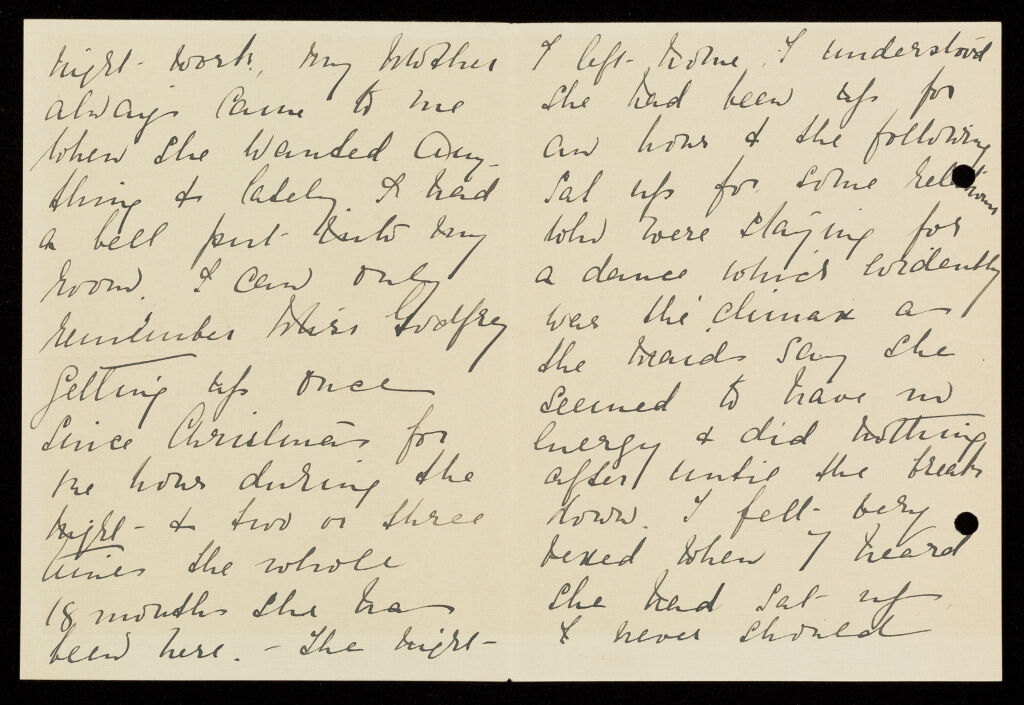 night - work, my Mother
always came to me
when she wanted any-
thing & lately I had
a bell put into my
room. I can only
remember Miss Godfrey
getting up once
since Christmas for
one hour during the
night - & two or three
times the whole
18 months she has
been here. - The night -
I left home, I understood
she had been up for
an hour & the following
sat up for some relations
who were staying for
a dance which evidently
was the climax as
the maids say she
seemed to have no
energy & did nothing
after until the break
down. I felt very
vexed when I heard
she had sat up
I never should